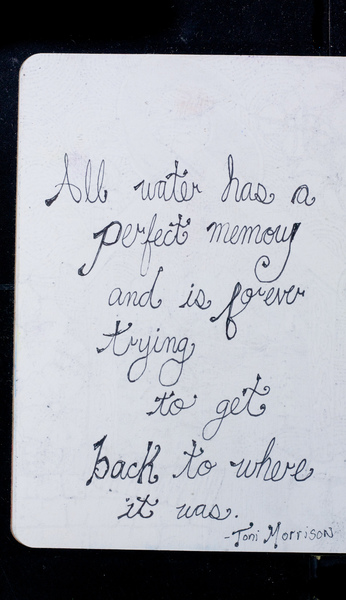 All water has a
perfect memory
and is forever
trying
to get
back to where
it was.
-Toni Morrison